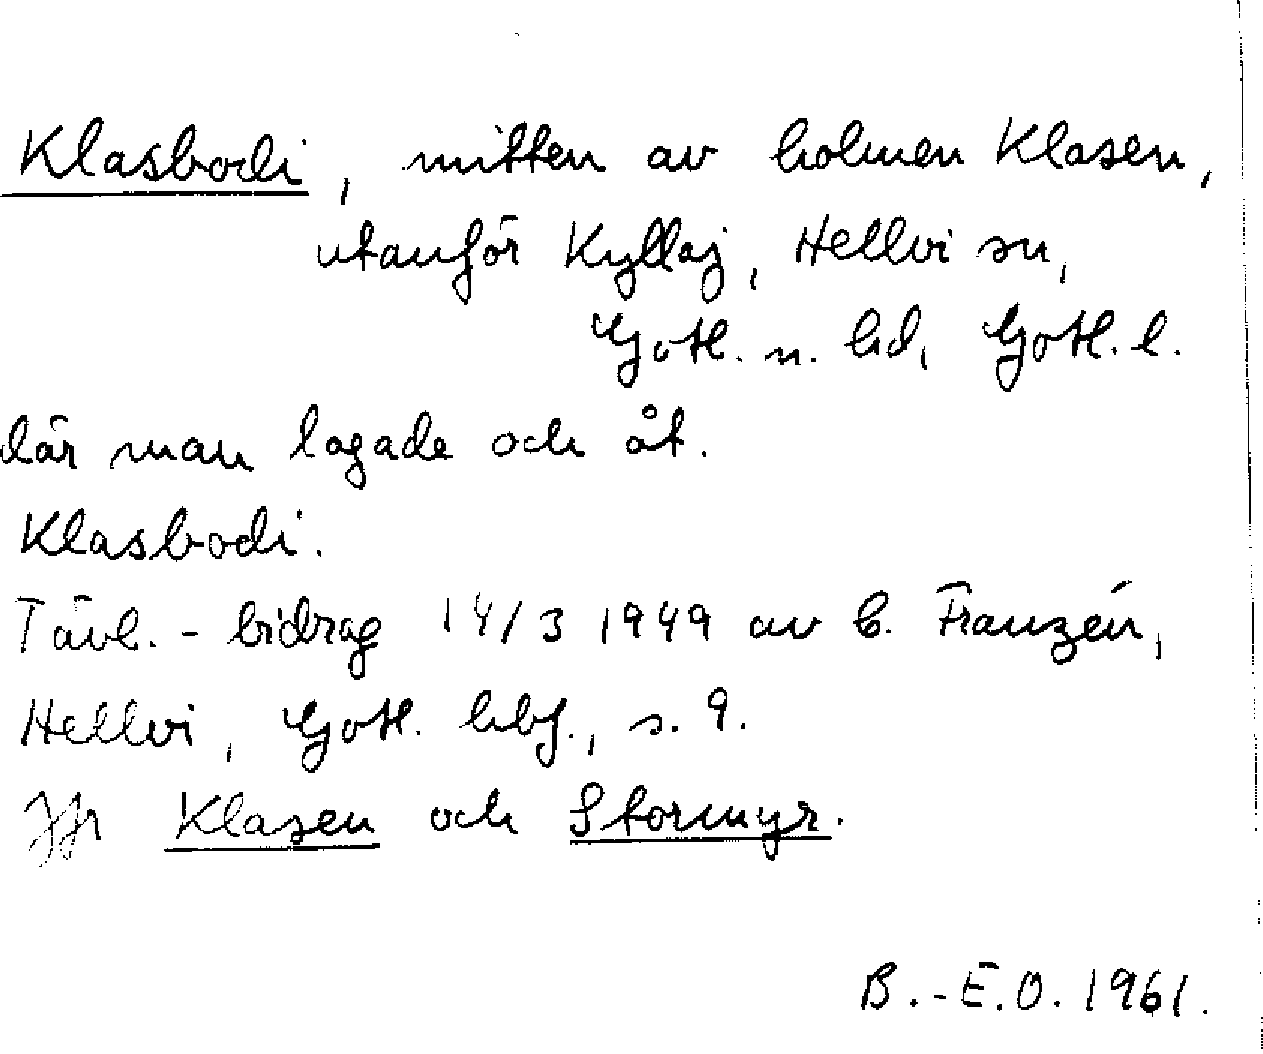 Klasbodi, mitten av holmen Klasen,
utanför Kyllaj, Hellvi sn,
Gotl. n. hd, Gotl. l.
där man lagade och åt.
Klasbodi.
Tävl.-bidrag 14/3 1949 av B. Franzén,
Hellvi, Gotl. hbf., s. 9.
Jfr Klasen och Stormyr.
B.-E.O. 1961.